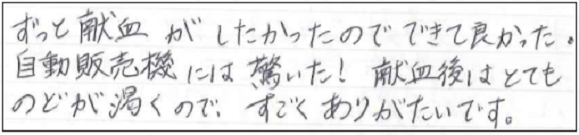 ずっと献血がしたかったのでできて良かった。
自動販売機には驚いた！献血後はとても
のどが渇くので、すごくありがたいです。